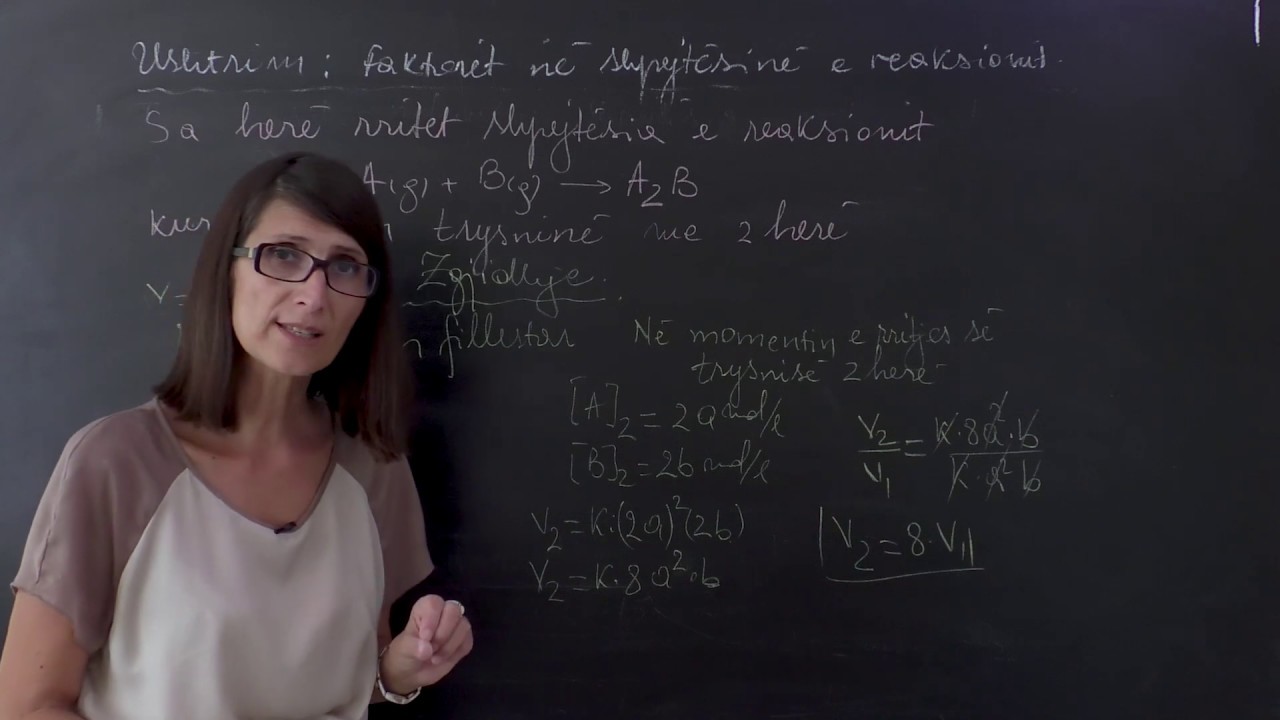 Ushtrim: faktorët në shpejtësinë e reaksionit.
Sa herë rritet shpejtësia e reaksionit
A(g) + B(g) → A₂B
kur trysninë me 2 herë
Zgjidhje.
V=
fillestar
Në momentin e rritjes së
trysnisë 2 herë
[A]₂ = 2a mol/l
[B]₂ = 2b mol/l
V₂ = K·(2a)²(2b)
V₂ = K·8a²·b
V₂/V₁ = K·8a²·b / K·a²·b
V₂ = 8·V₁